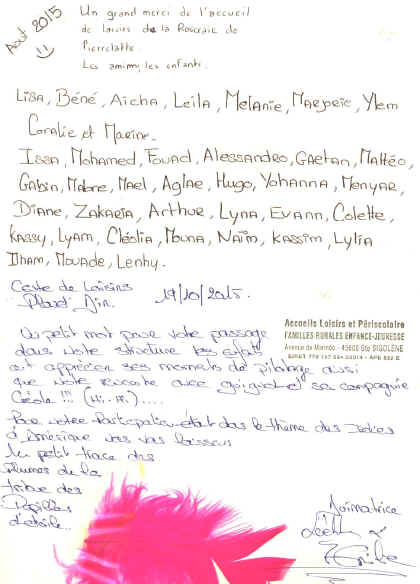 Aout 2015
Un grand merci de l'accueil
de loisirs de la Roseraie de
Pierrelatte.
Les animm, les enfants.
Lisa, Béné, Aicha, Leila, Melanie, Marjorie, Ylem
Coralie et Marine.
Issa, Mohamed, Fouad, Alessandro, Gaetan, Mattéo,
Gabin, Malone, Mael, Aglae, Hugo, Yohanna, Menyar,
Diane, Zakaria, Arthur, Lyna, Evann, Colette,
Kassy, Lyam, Cléolia, Mouna, Naïm, Kassim, Lylia
Ilham, Mouade, Lenhy.
Centre de Loisirs
Planet' Air. 19/10/2015.
Accueils Loisirs et Périscolaire
FAMILLES RURALES ENFANCE-JEUNESSE
43600 Ste SIGOLENE
Un petit mot pour votre passage
dans notre structure les enfants
ont apprécier ses moments de pilotage aussi
que votre rencontre avec sa compagnie
Cécile !!! (Hi.. Hi.)....
Pour votre participation étant dans le thème des Indiens
d'Amérique vous laissons
Un petit trace des
plumes de la
tribu des
Papilles
d'étoile..